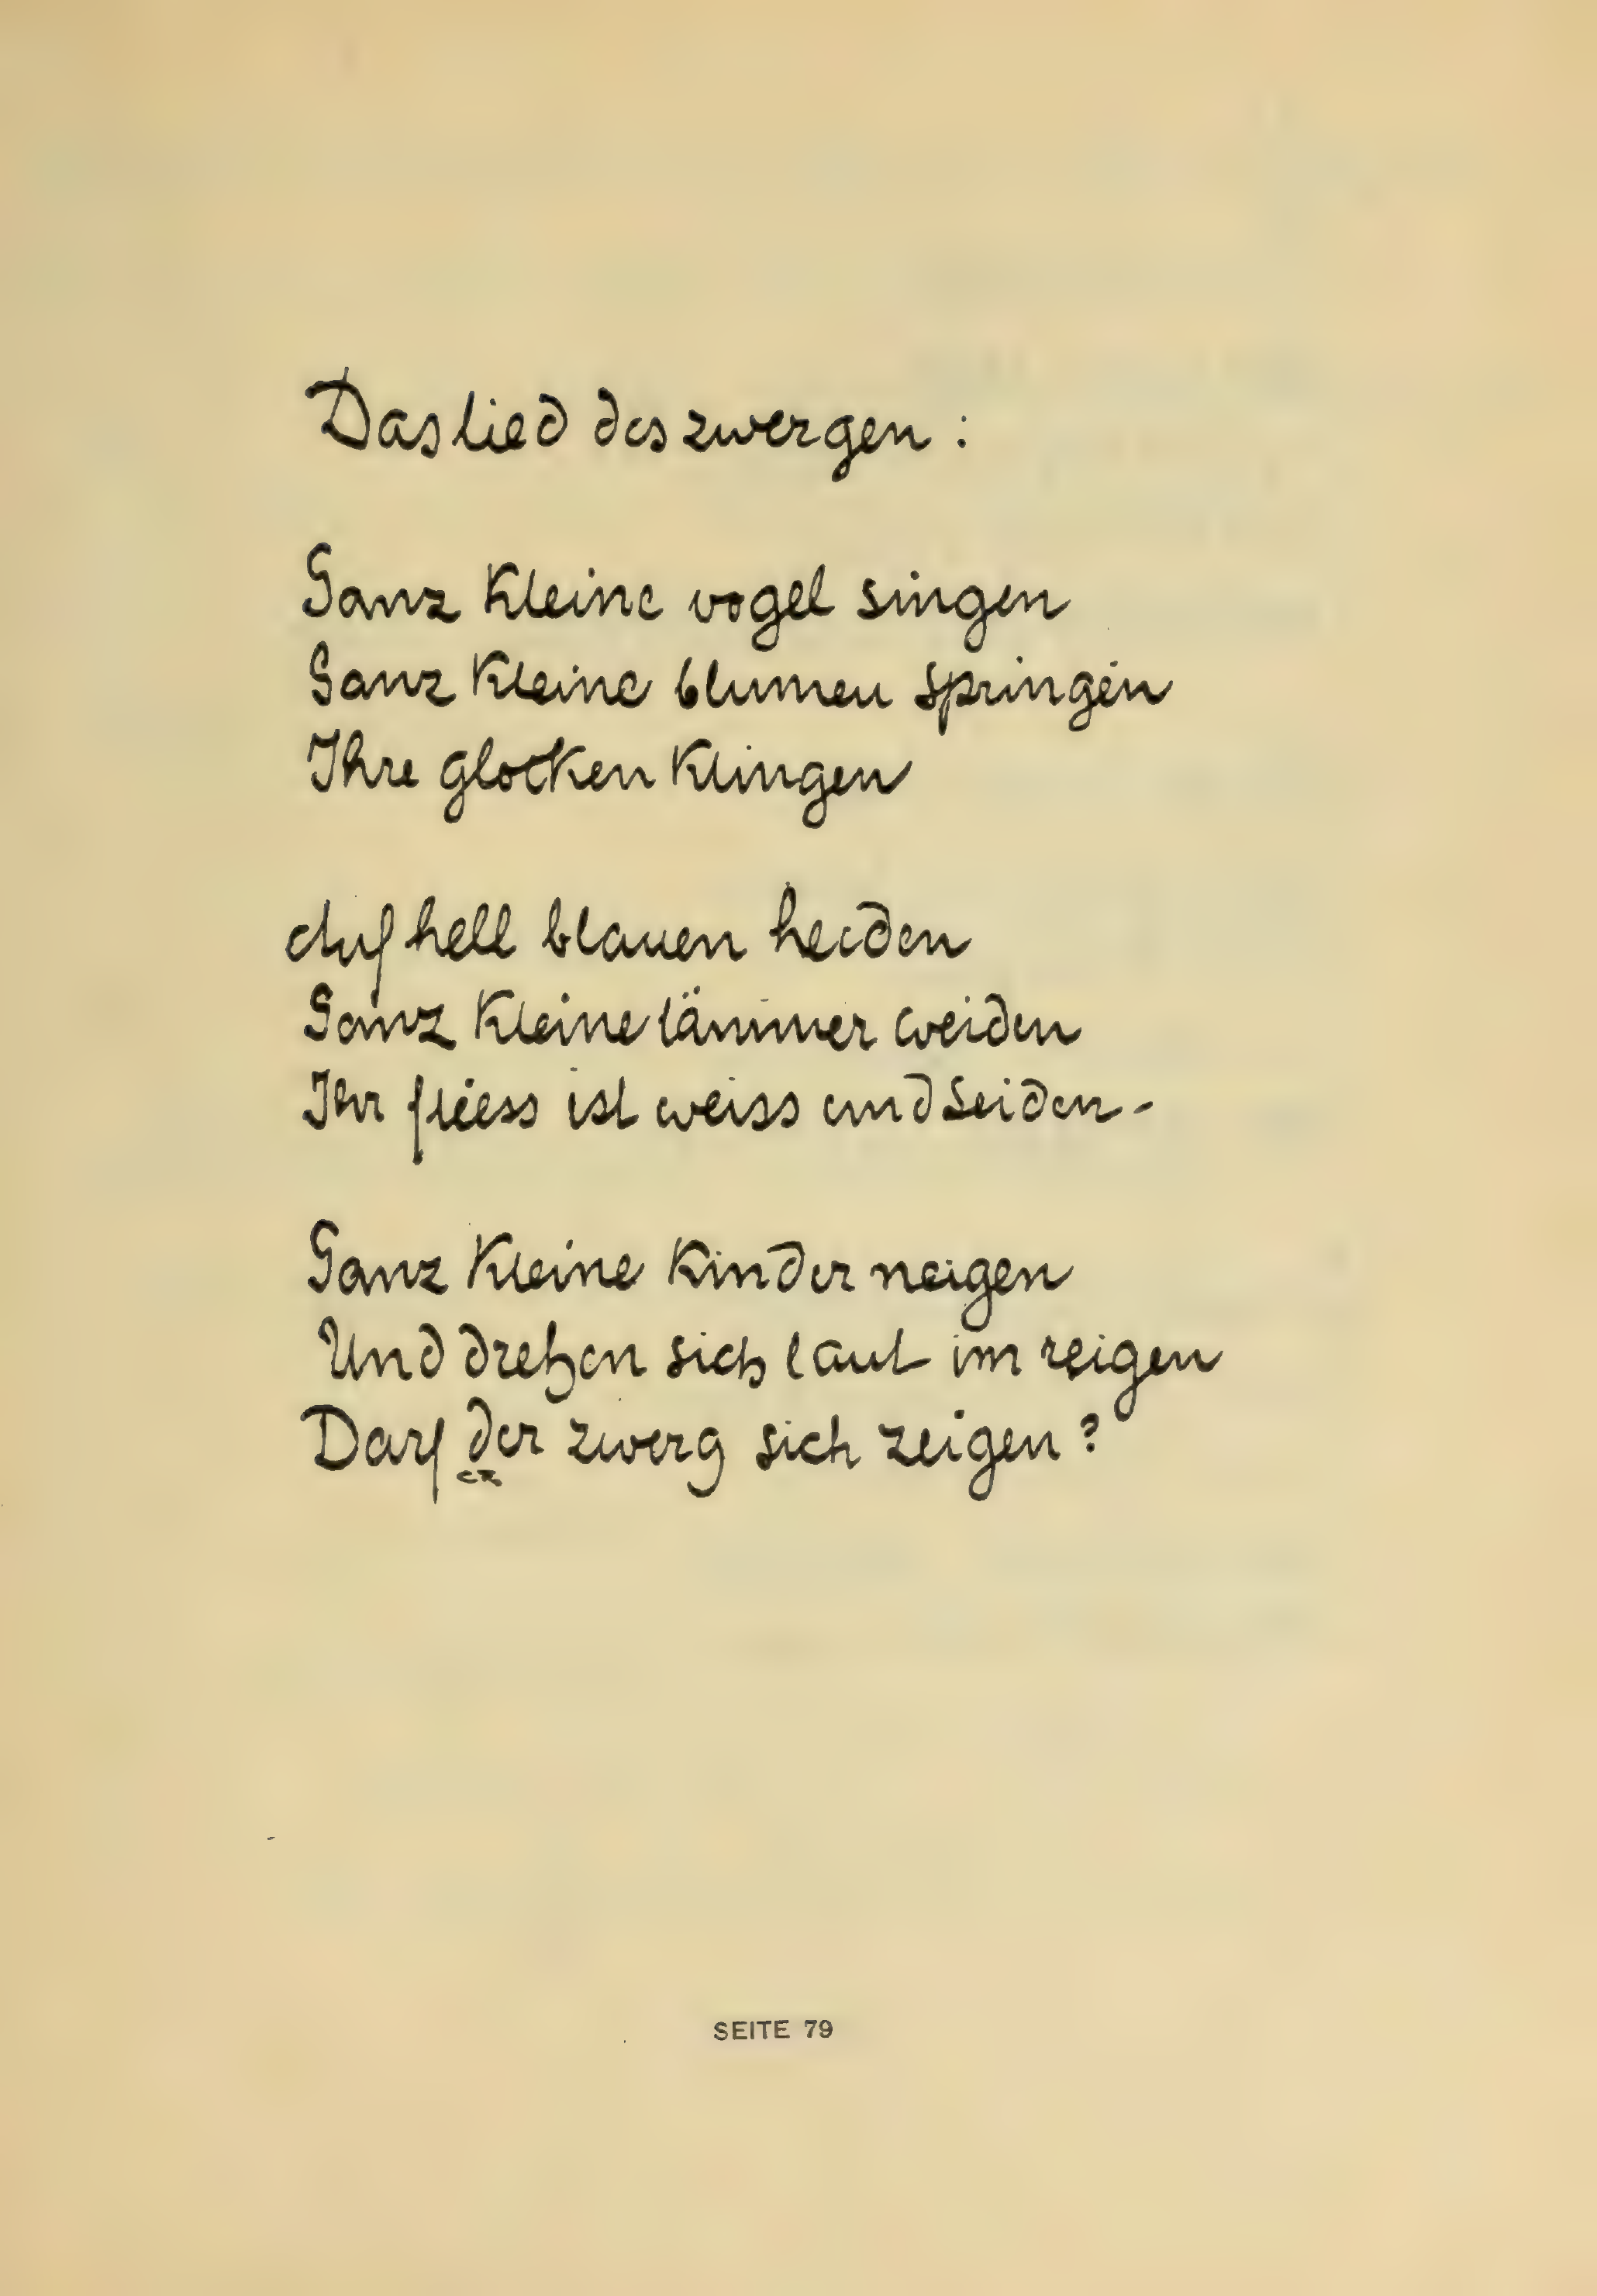 Das lied des zwergen :
Ganz kleine vogel singen
Ganz kleine blumen springen
Ihre glocken klingen
Auf hell blauen heiden
Ganz kleine lämmer weiden
Ihr fliess ist weiss und seiden -
Ganz kleine kinder neigen
Und drehen sich laut im reigen
Darf der zwerg sich zeigen ?
SEITE 79